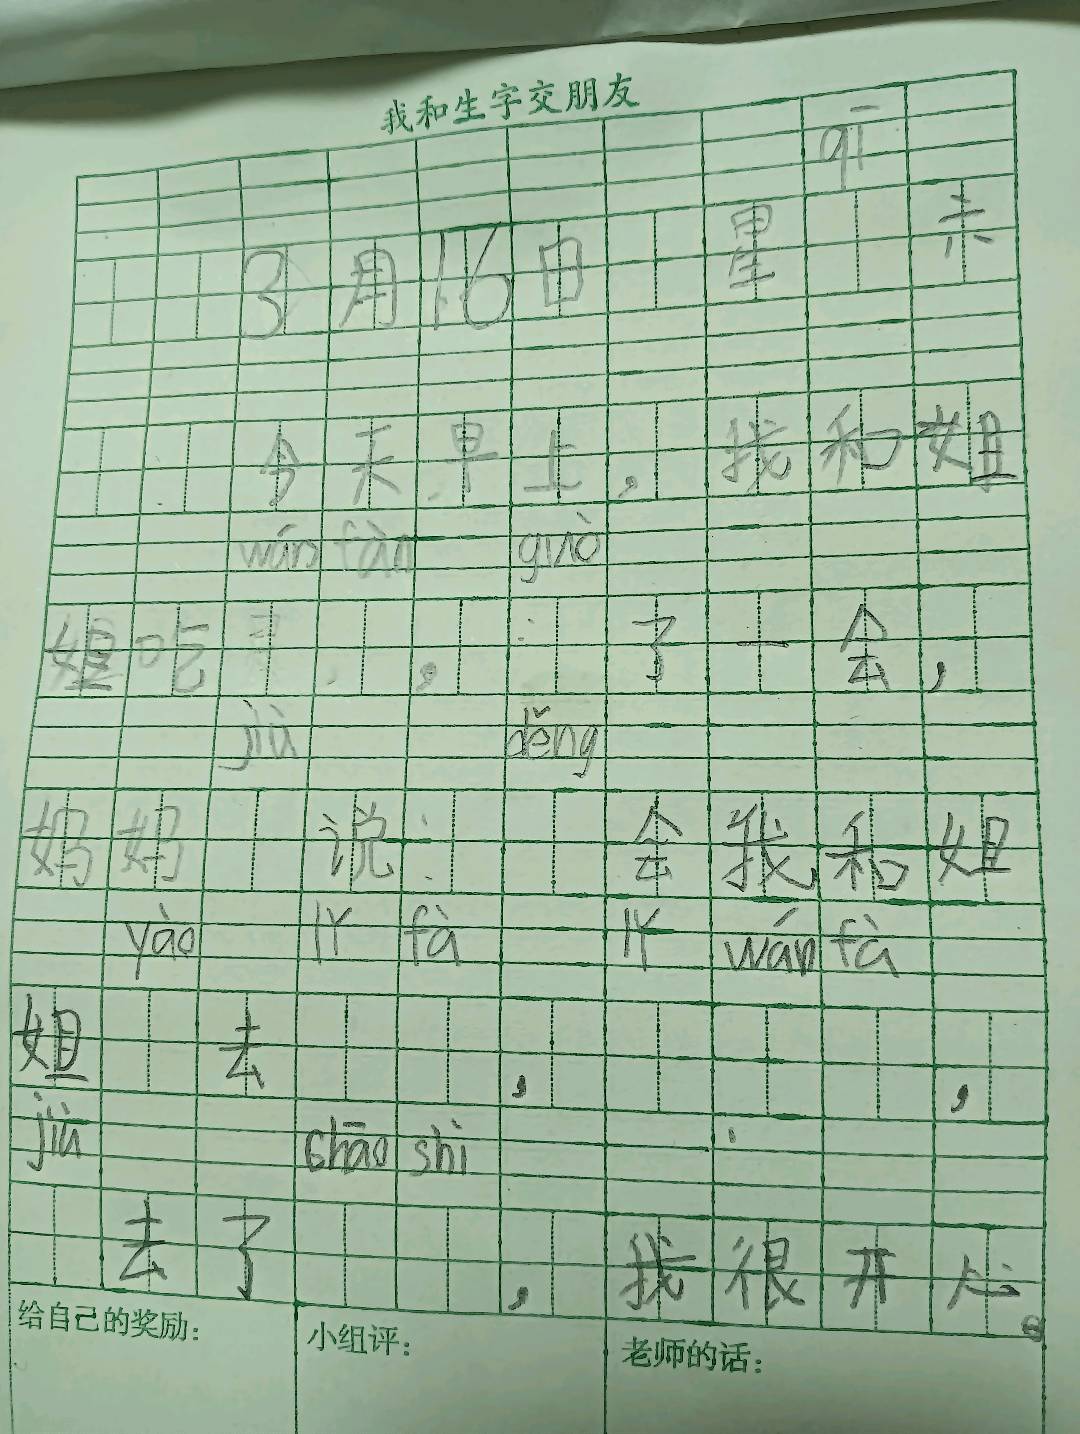 我和生字交朋友
qī
3月16日 星 天
今天早上，我和姐
wán fàn guò
姐吃 ， 了一会，
jiù děng
妈妈 说： 会我和姐
yào lǐ fà lǐ wán fà
姐 去 ， ，
jiù chāo shì
去了 ，我很开心。
给自己的奖励：
小组评：
老师的话：